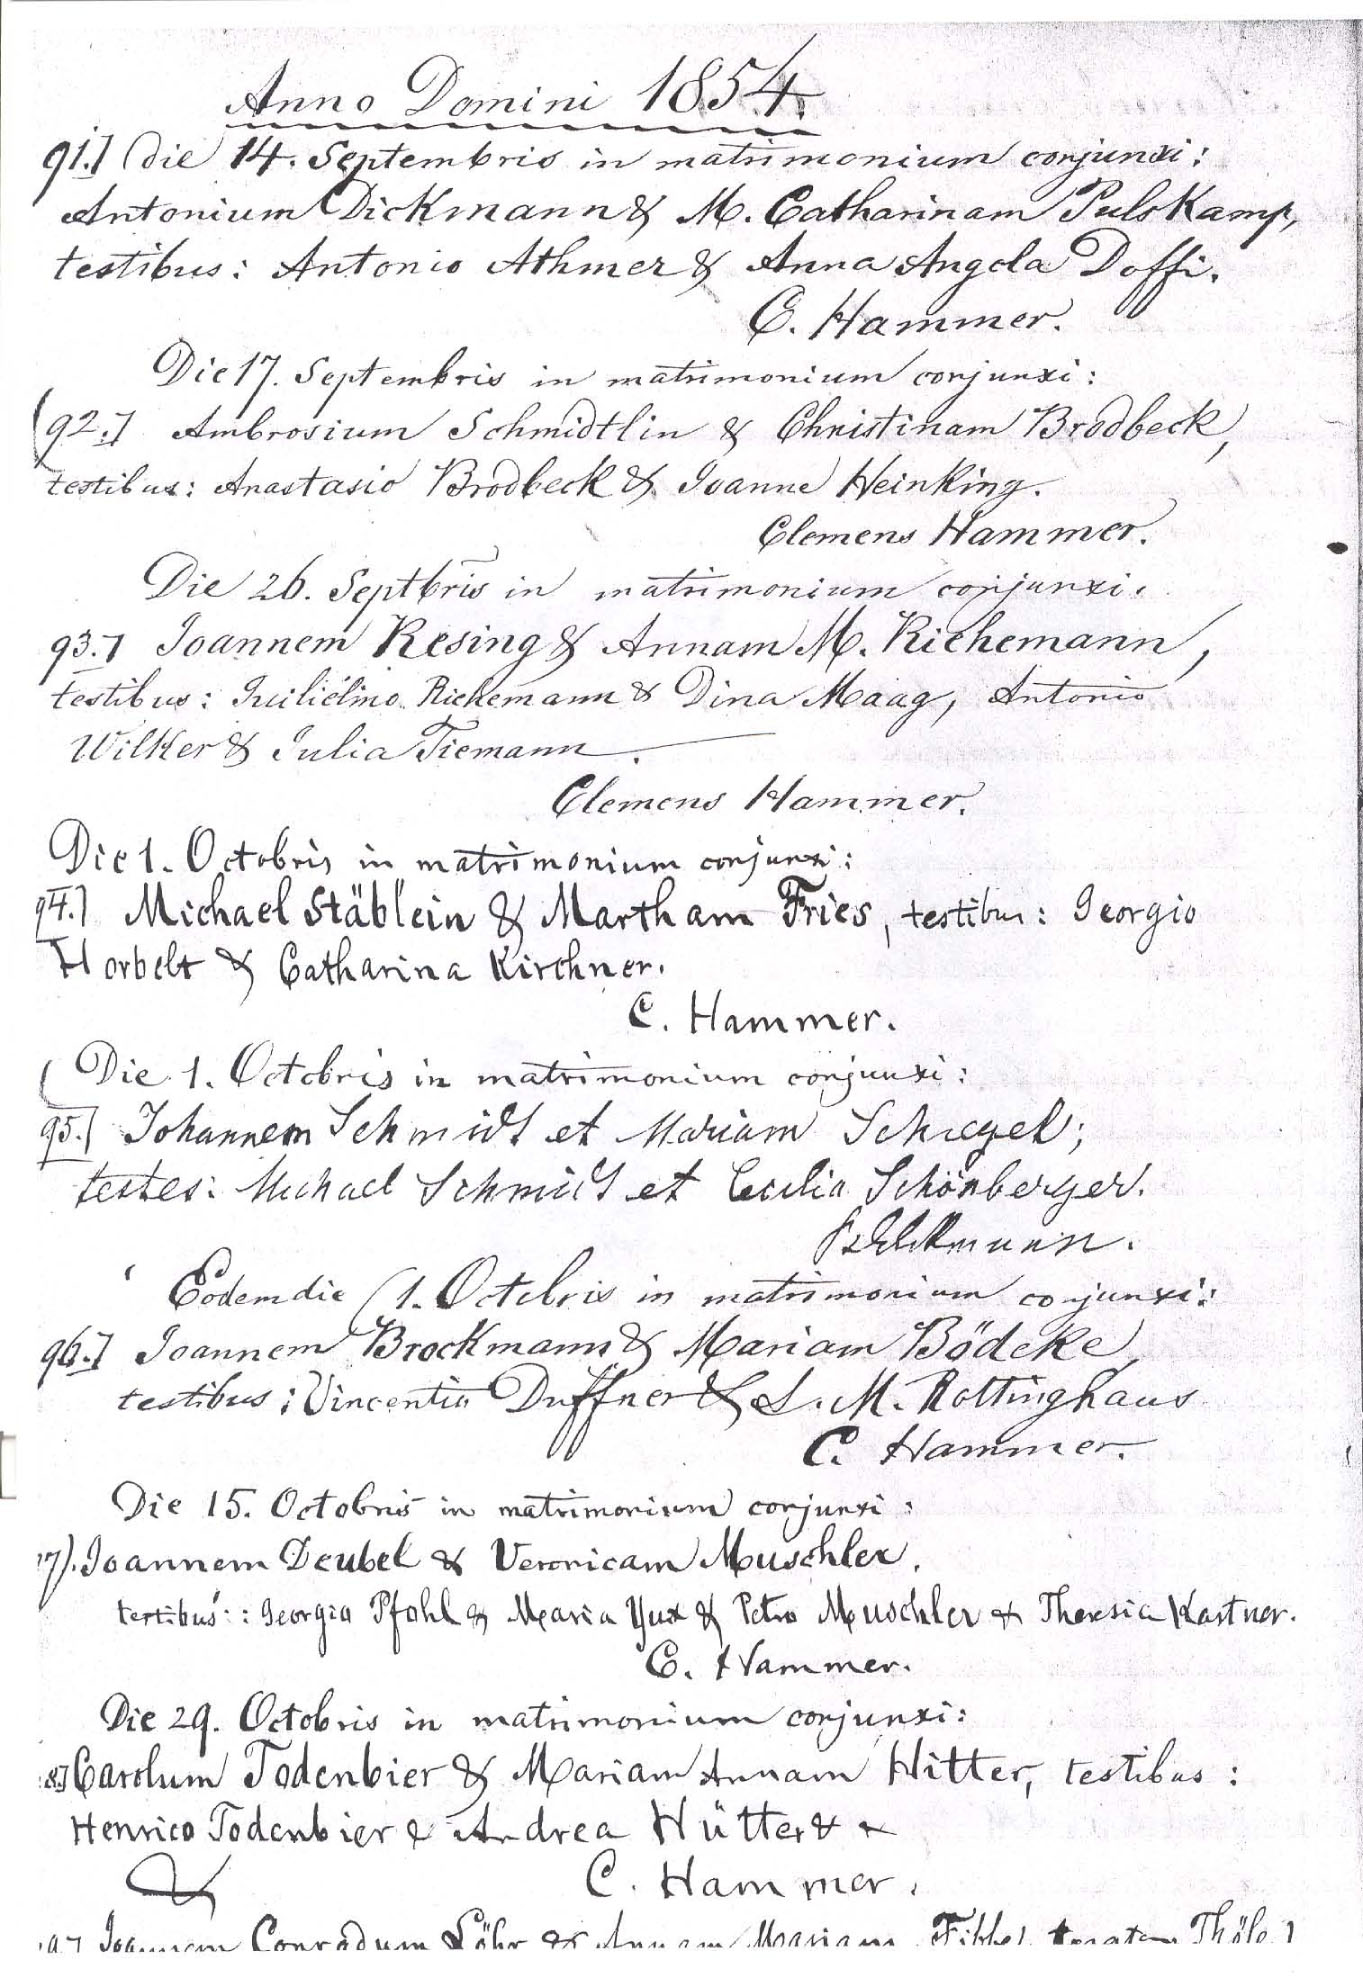 Anno Domini 1854.
91.] Die 14. Septembris in matrimonium conjunxi:
Antonium Dickmann & M. Catharinam Pulskamp,
testibus: Antonio Athmer & Anna Angela Doffi.
C. Hammer.
Die 17. Septembris in matrimonium conjunxi:
92.] Ambrosium Schmidtlin & Christinam Brodbeck,
testibus: Anastasio Brodbeck & Joanne Heinking.
Clemens Hammer.
Die 26. Septbris in matrimonium conjunxi.
93.] Joannem Resing & Annam M. Riehemann,
testibus: Guilielmo Riehemann & Dina Maag, Antonio
Wilker & Julia Tiemann.
Clemens Hammer.
Die 1. Octobris in matrimonium conjunxi:
94.] Michael Stäblein & Martham Fries, testibus: Georgio
Horbelt & Catharina Kirchner.
C. Hammer.
Die 1. Octobris in matrimonium conjunxi:
95.] Johannem Schmidt et Mariam Schegel;
testes: Michael Schmidt et Cecilia Schönberger.
Eodem die (1. Octobris in matrimonium conjunxi:
96.] Joannem Brockmann & Mariam Bödeke,
testibus: Vincentio Duffner & L. M. Rottinghaus
C. Hammer.
Die 15. Octobris in matrimonium conjunxi:
7). Joannem Deubel & Veronicam Muschler.
testibus: Georgio Pfohl & Maria Yux & Petro Muschler & Theresia Kastner.
C. Hammer.
Die 29. Octobris in matrimonium conjunxi:
8.] Carolum Todenbier & Mariam Annam Hitter, testibus:
Henrico Todenbier & Andrea Hütter &
C. Hammer.
Joannem Conradum Löhr & Annam Mariam Thöle